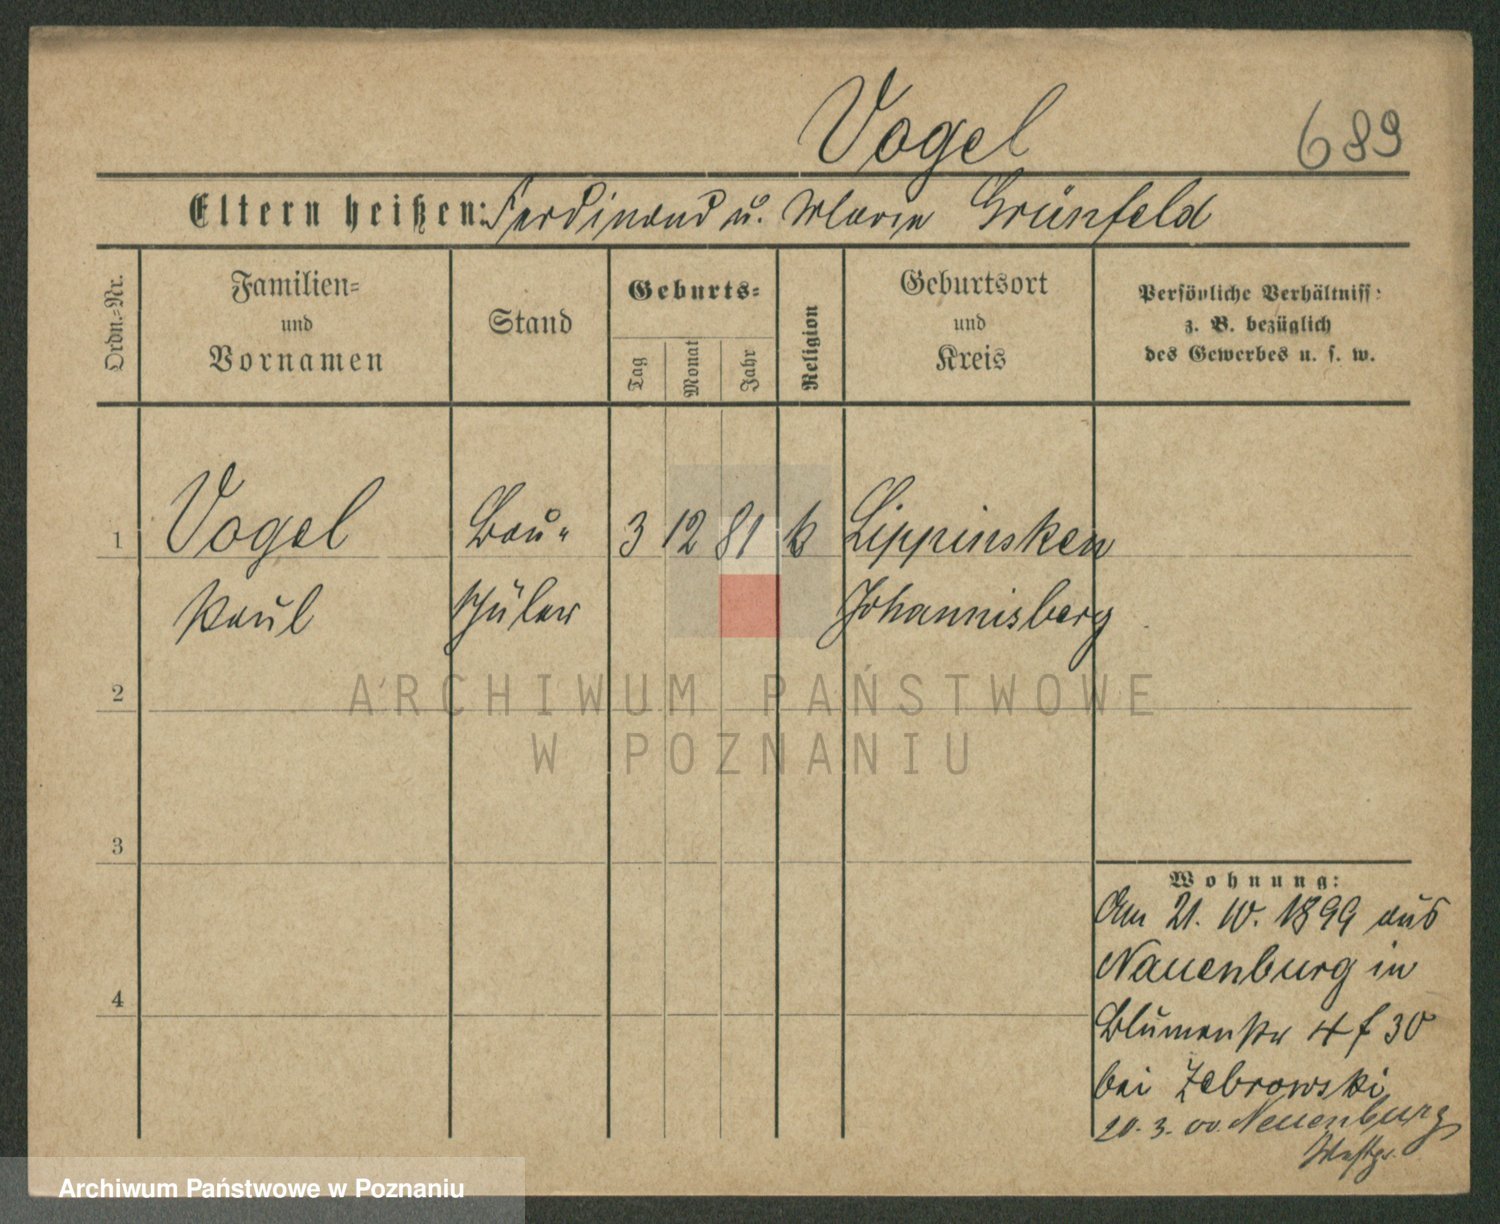 Vogel
689
Eltern heißen: Ferdinand u. Marie Grünfeld
Ordn.-Nr.
Familien-
und
Vornamen
Stand
Geburts-
Tag
Monat
Jahr
Religion
Geburtsort
und
Kreis
Persönliche Verhältniss:
z. B. bezüglich
des Gewerbes u. s. w.
1 Vogel Bau- 3 12 81 k Lippinsken
Paul schüler Johannisberg
2
ARCHIWUM PAŃSTWOWE
W POZNANIU
3
Wohnung:
Am 21. 10. 1899 aus
Nauenburg in
4
Blumenstr 4 f 30
bei Zebrowski
20. 3. 00. Neuenburg
Westpr.
Archiwum Państwowe w Poznaniu